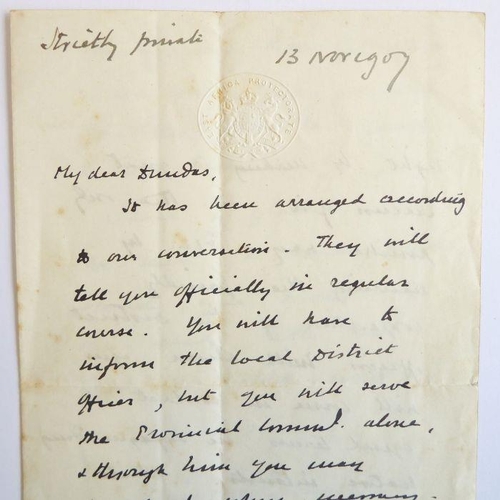 Strictly private
13 Nov 1907
EAST AFRICA PROTECTORATE
My dear Dundas,
It has been arranged according
to our conversation. They will
tell you officially in regular
course. You will have to
inform the local District
Officer, but you will serve
the Provincial Comml. alone,
& through him you may
when necessary.